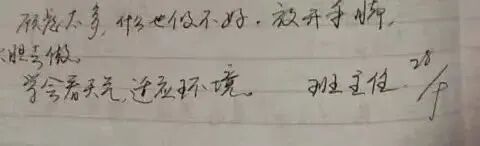 顾虑太多,什么也做不好。放开手脚,
大胆去做。
学会看天气,适应环境。 班主任 28/9